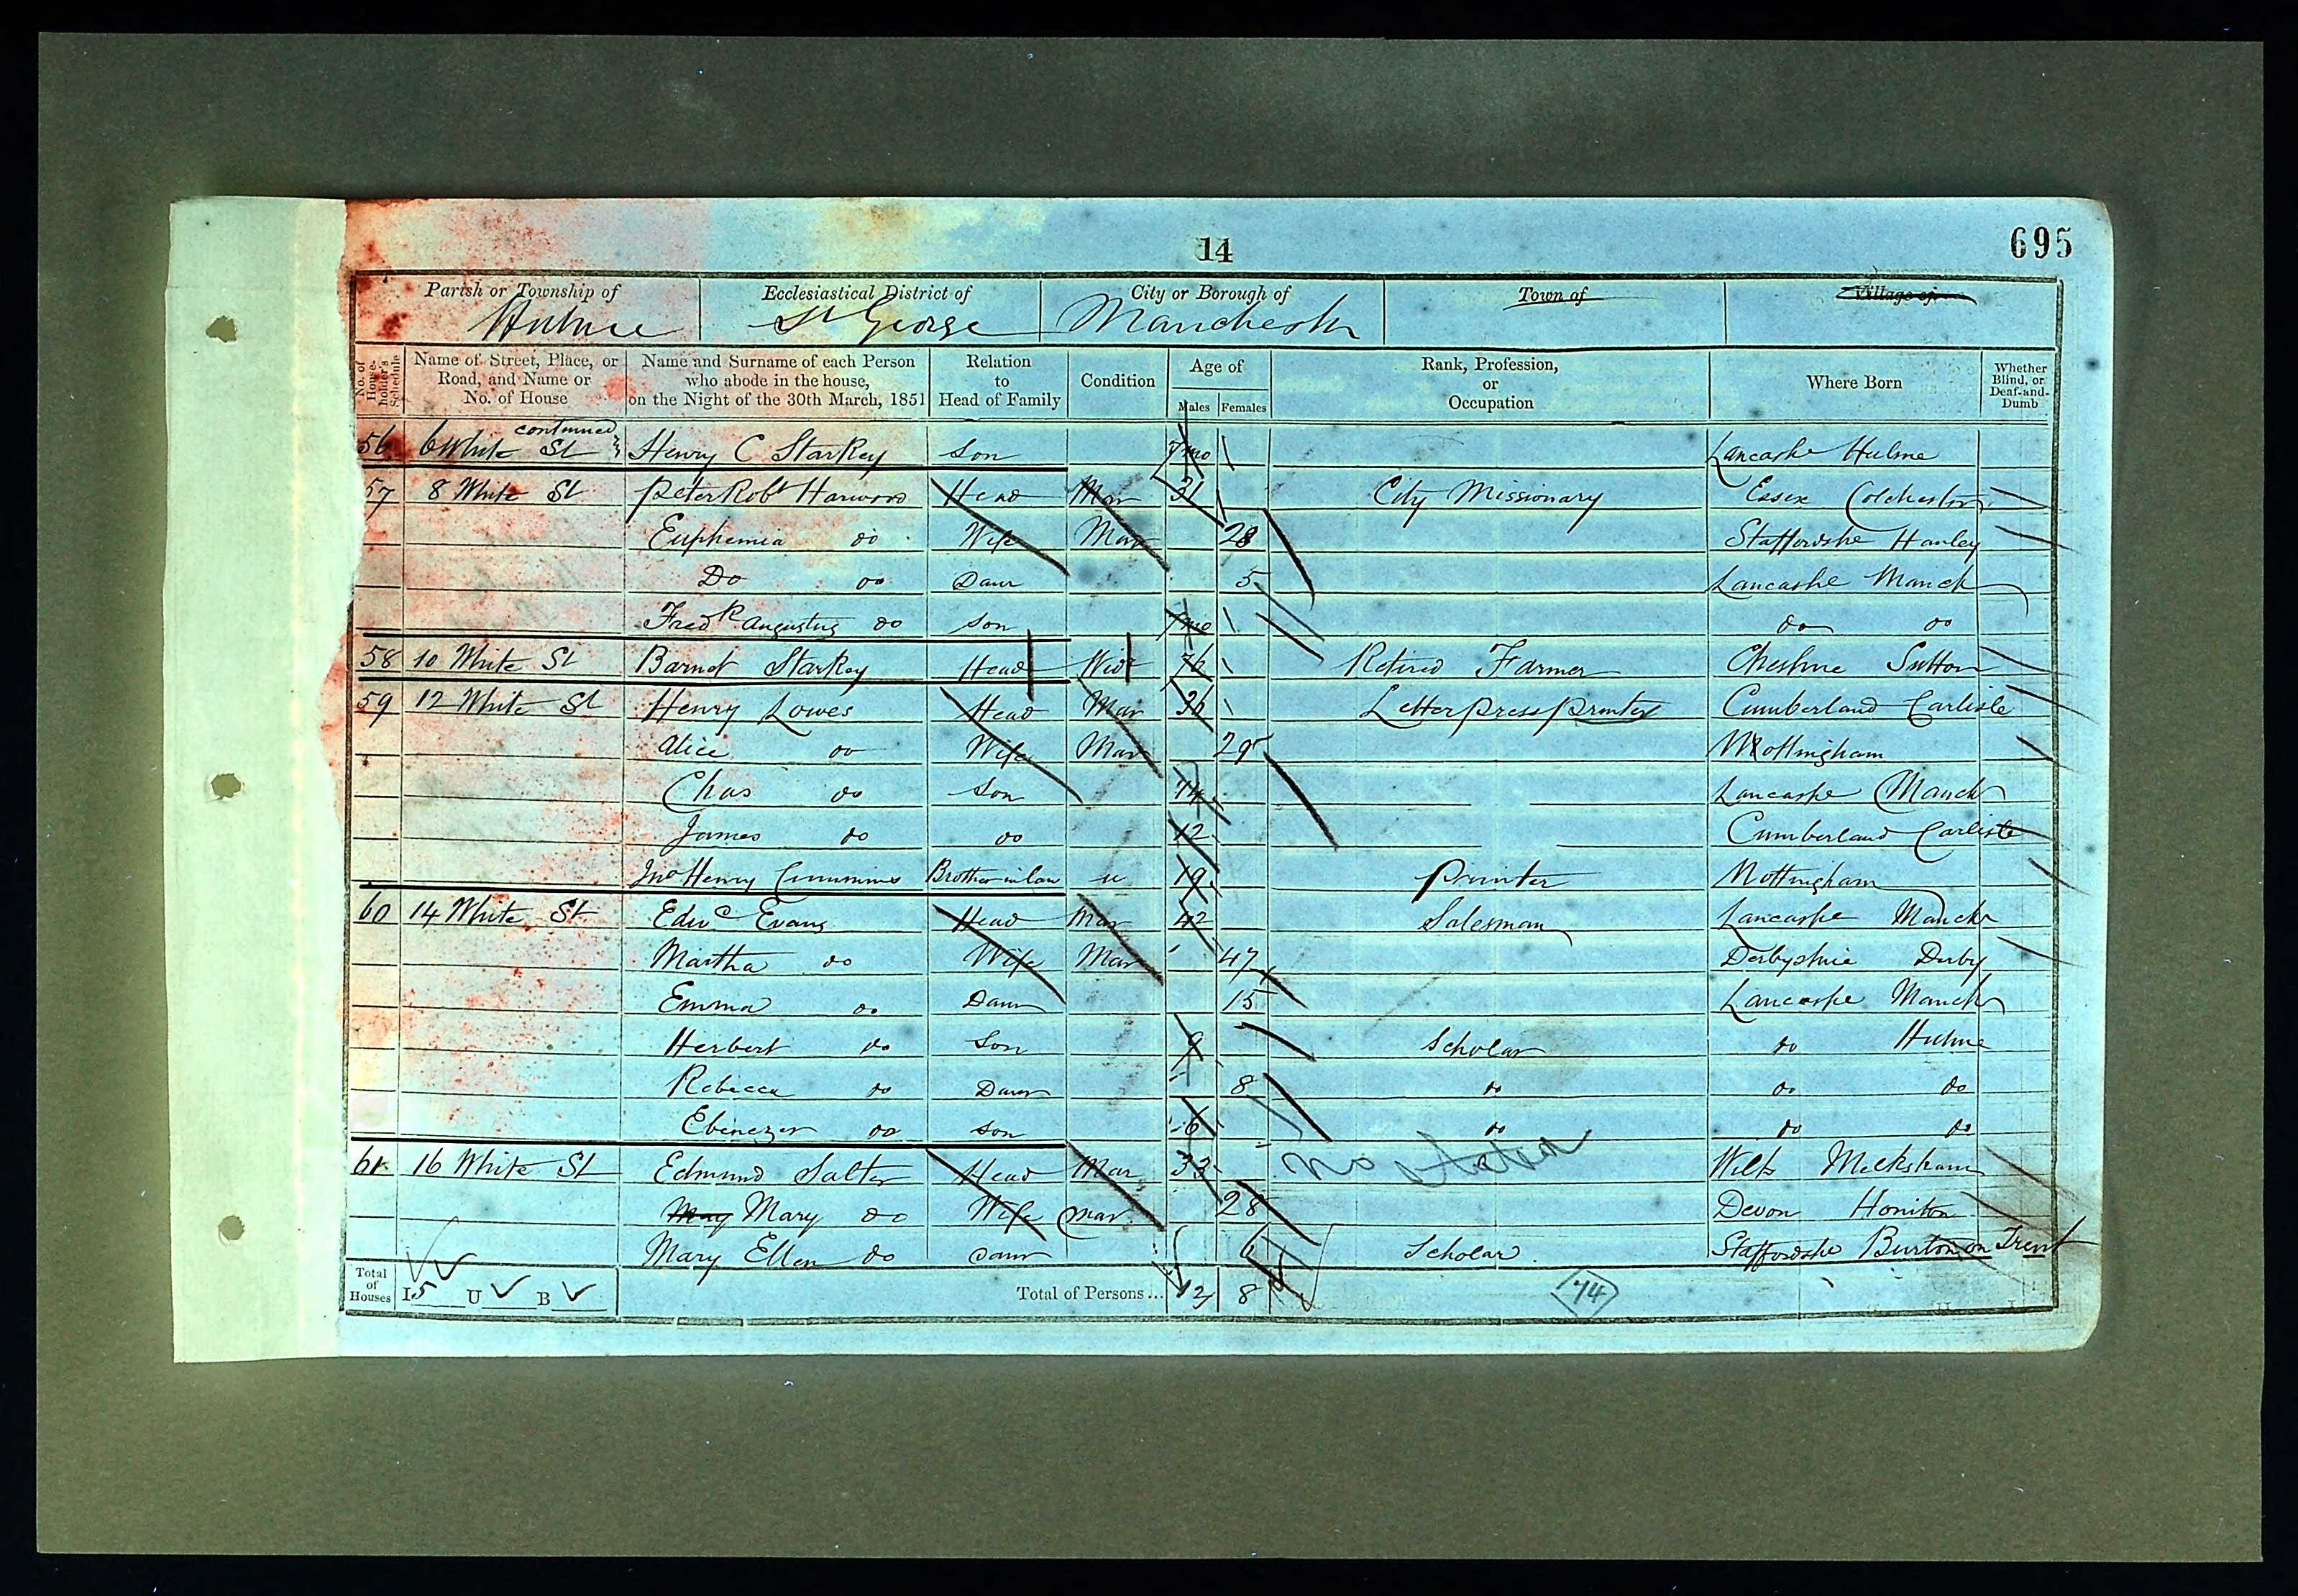 14
695
Parish or Township of Ecclesiastical District of City or Borough of Town of Village of
Hulme St George Manchester
No. of House-holder's Schedule Name of Street, Place, or Road, and Name or No. of House Name and Surname of each Person who abode in the house, on the Night of the 30th March, 1851 Relation to Head of Family Condition Age of Males Females Rank, Profession, or Occupation Where Born Whether Blind, or Deaf-and-Dumb
continued
56 6 White St Henry C Starkey Son 7 mo Lancashe Hulme
57 8 White St Peter Robt Harwood Head Mar 31 City Missionary Essex Colchester
Euphemia do Wife Mar 28 Staffordshe Hanley
Do do Daur 5 Lancashe Manch
Fredk Augustus do Son 7 mo do do
58 10 White St Barnet Starkey Head Widr 76 Retired Farmer Cheshire Sutton
59 12 White St Henry Lowes Head Mar 36 Letter press printer Cumberland Carlisle
Alice do Wife Mar 29 Nottingham
Chas do Son 14 Lancashe Manchr
James do do 12 Cumberland Carlisle
Jno Henry Cummins Brother in law u 19 Printer Nottingham
60 14 White St Edwd Evans Head Mar 42 Salesman Lancashe Manchr
Martha do Wife Mar 47 Derbyshire Derby
Emma do Daur 15 Lancashe Manchr
Herbert do Son 9 Scholar do Hulme
Rebecca do Daur 8 do do do
Ebenezer do Son 6 do do do
61 16 White St Edmund Salter Head Mar 33 no stated Wilts Melksham
May Mary do Wife Mar 28 Devon Honiton
Mary Ellen do Daur 6 Scholar Staffordshe Burton on Trent
Total of Houses I 5 U B Total of Persons... 12 8
74